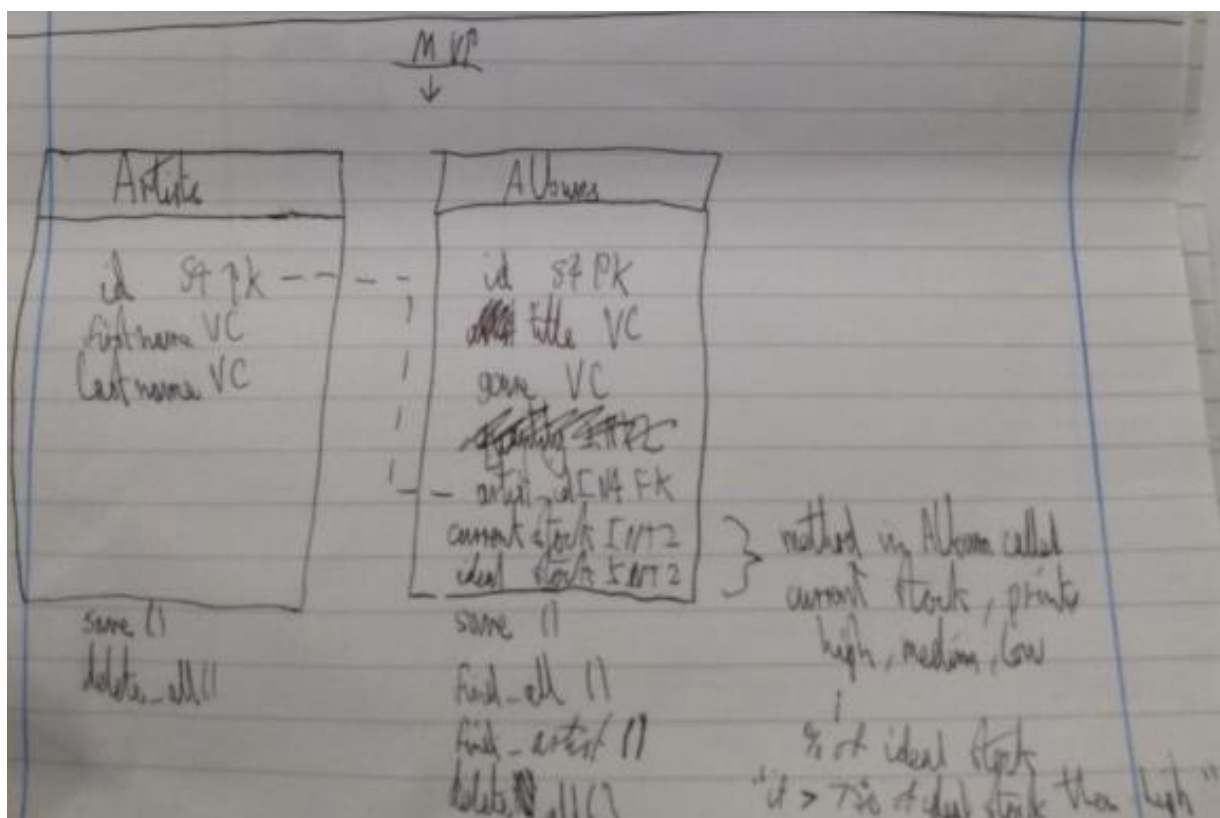 MVP
Artists
id S4 PK
first name VC
last name VC
save ()
delete_all()
Albums
id S4 PK
title VC
genre VC
artist_id INT4 FK
current stock INT2
ideal stock INT2
save ()
find_all ()
find_artist ()
delete_all()
method in Album called
current stock, prints
high, medium, low
% of ideal stock
"if > 75% of ideal stock then high"